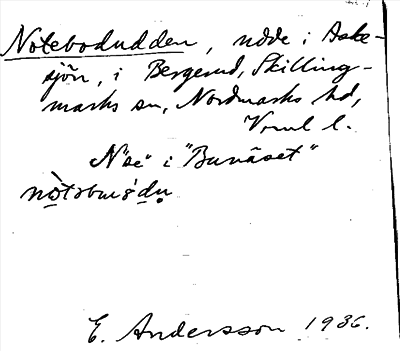 Notebodudden, udde i Aske-
sjön, i Bergerud, Skilling-
marks sn, Nordmarks hd,
Vrml l.
N"se" i "Bunäset"
E. Andersson 1936.